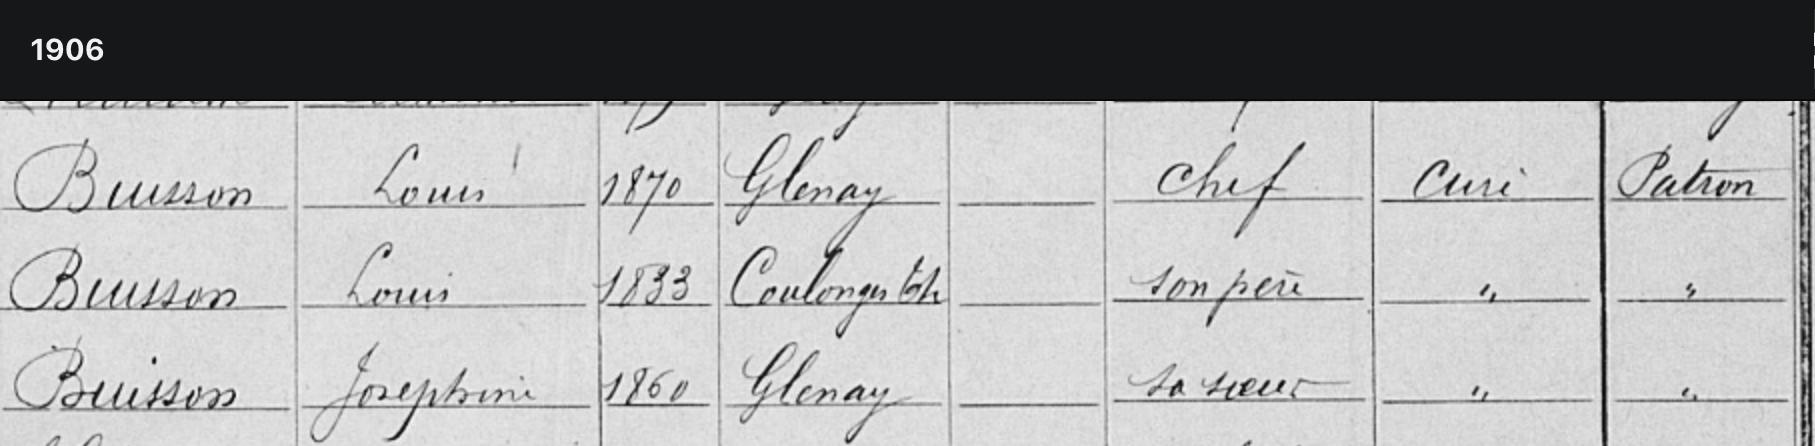 1906
Buisson Louis 1870 Glenay chef Curé Patron
Buisson Louis 1833 Coulonges son père " "
Buisson Joséphine 1860 Glenay sa sœur " "